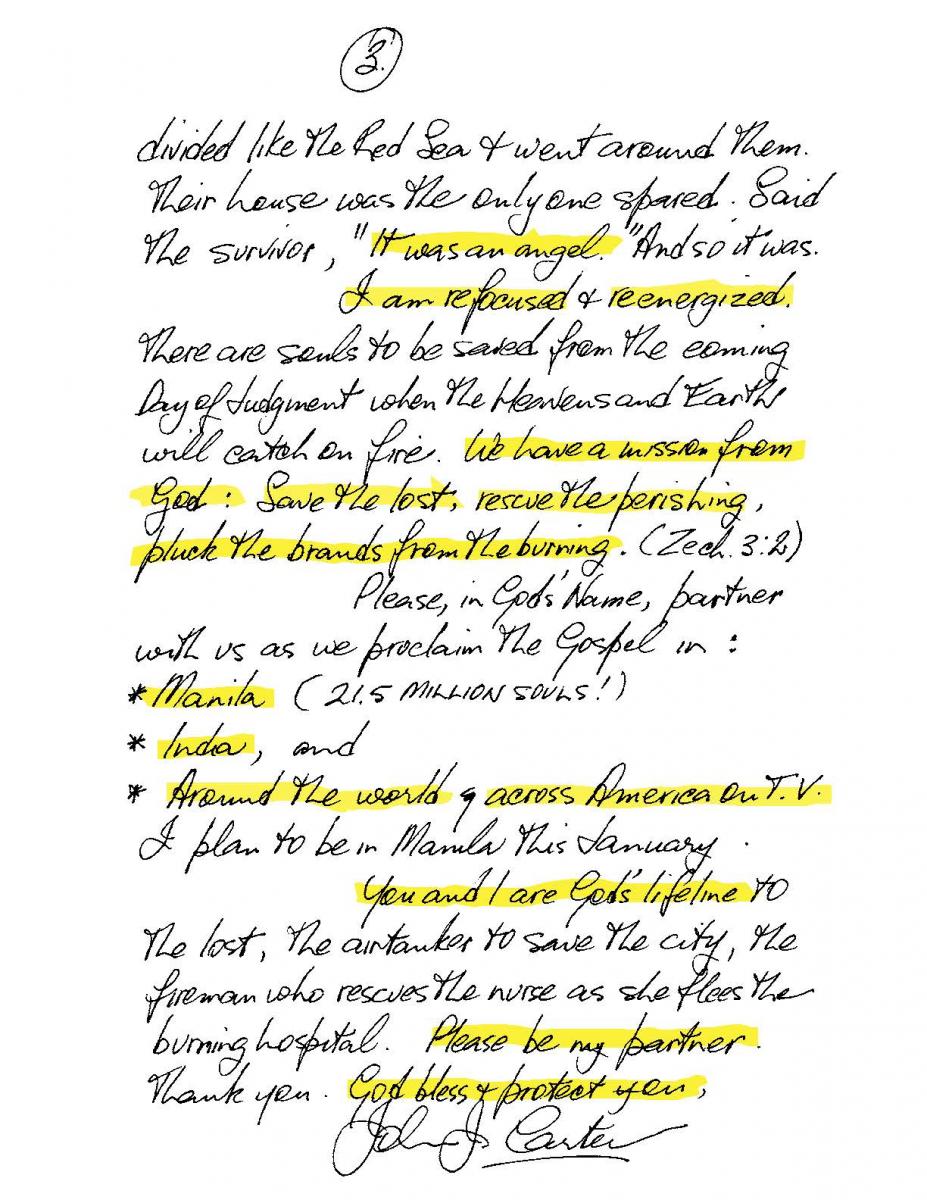 3.
divided like the Red Sea & went around them.
Their house was the only one spared. Said
the survivor, "It was an angel." And so it was.
I am refocused & reenergized.
There are souls to be saved from the coming
Day of Judgment when the Heavens and Earth
will catch on fire. We have a mission from
God: Save the lost, rescue the perishing,
pluck the brands from the burning. (Zech. 3:2)
Please, in God's Name, partner
with us as we proclaim the Gospel in:
* Manila (21.5 MILLION SOULS!)
* India, and
* Around the world & across America on T.V.
I plan to be in Manila this January.
You and I are God's lifeline to
the lost, the airtanker to save the city, the
fireman who rescues the nurse as she flees the
burning hospital. Please be my partner.
Thank you. God bless & protect you,
John J. Carter